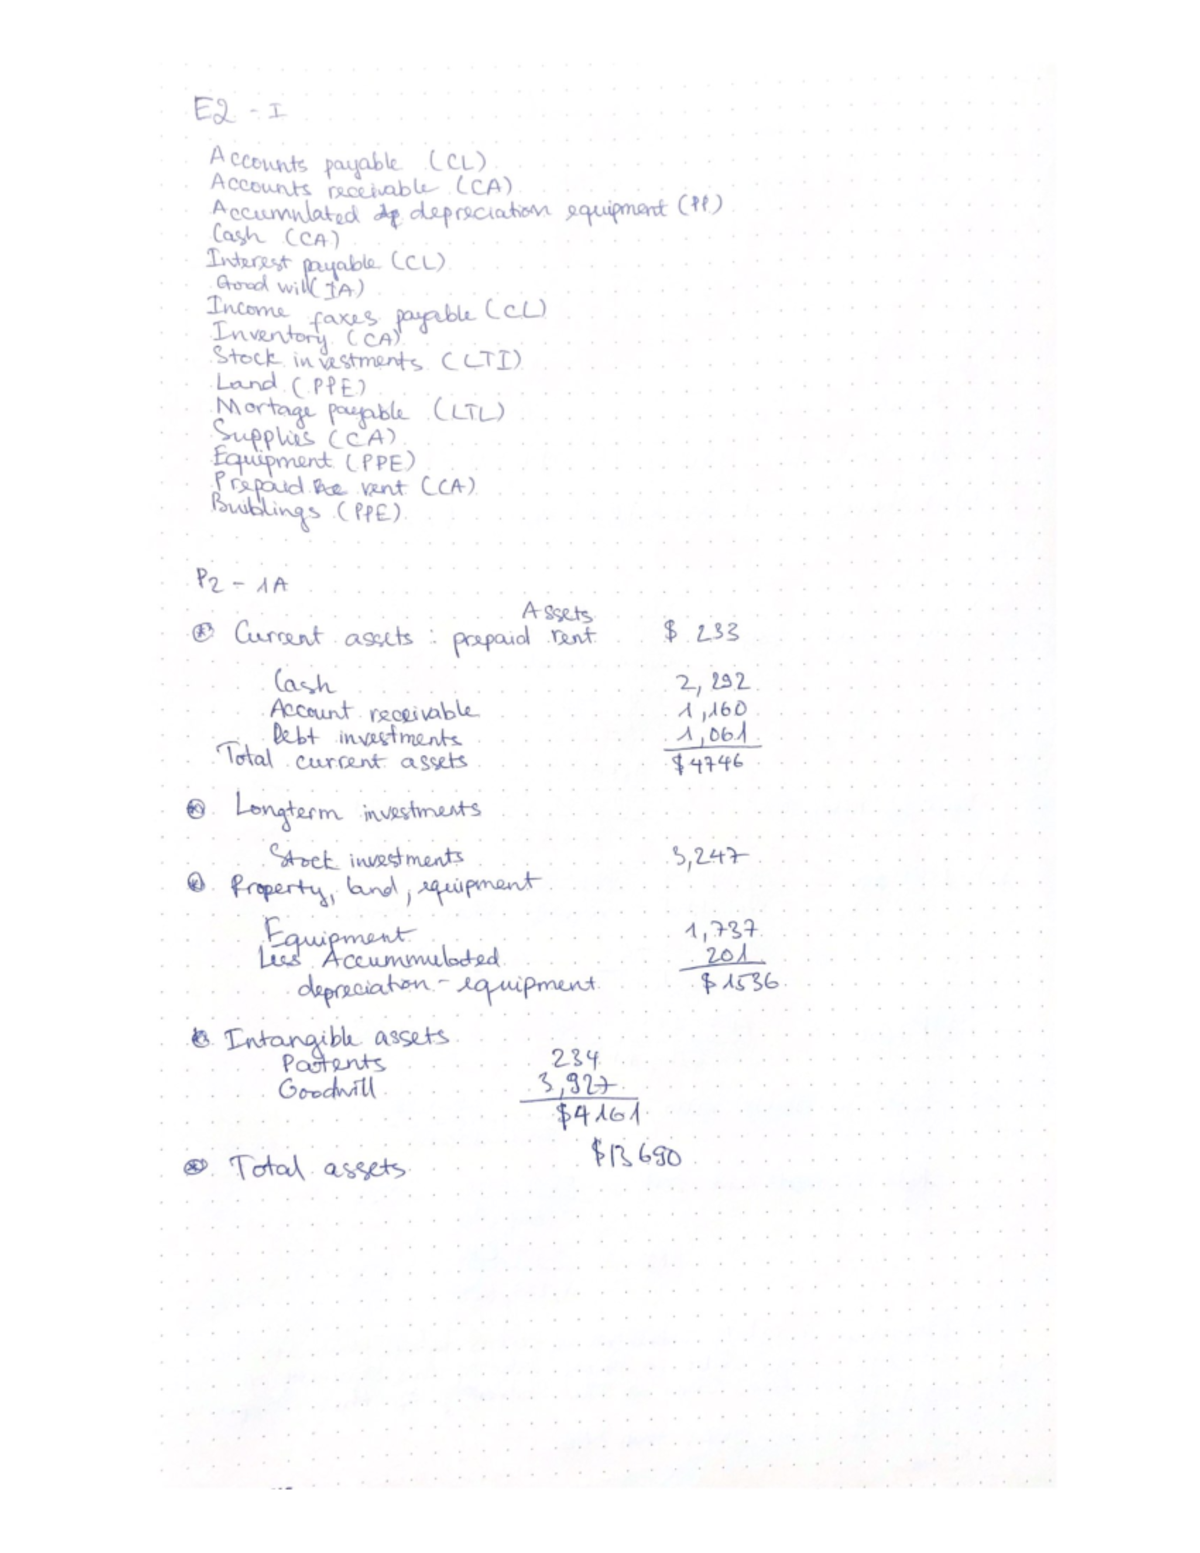 E2 - I
Accounts payable (CL)
Accounts receivable (CA)
Accumulated dp depreciation equipment (PP)
Cash (CA)
Interest payable (CL)
Good will (IA)
Income faxes payable (CL)
Inventory (CA)
Stock investments (LTI)
Land (PPE)
Mortage payable (LTL)
Supplies (CA)
Equipment (PPE)
Prepaid rent (CA)
Buiblings (PPE)
P2 - 1A
Assets
Current assets : prepaid rent $ 233
Cash 2,292
Account receivable 1,160
Debt investments 1,061
Total current assets $4746
Longterm investments
Stock investments 3,247
Property, land, equipment
Equipment 1,737
Less Accummulated 201
depreciation - equipment $1536
Intangible assets
Patents 234
Goodwill 3,927
$4161
$13690
Total assets